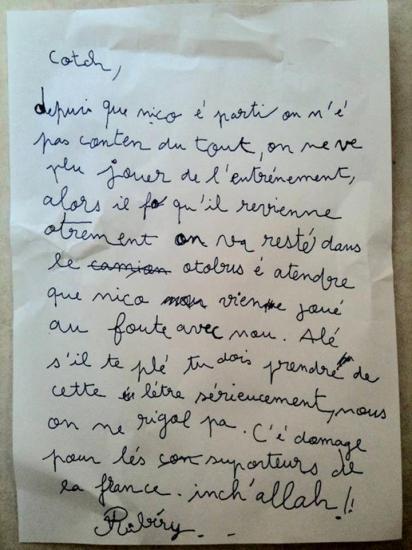 Cotch,
depuri que nico é parti on n'é
pas conten du tout, on ne ve
plu jouer de l'entrénement,
alors il fo qu'il revienne
otrement on va resté dans
le camion otobus é atendre
que nico vienne joué
au foute avec nou. Alé
s'il te plé tu dois prendre de
cette létre sérieucement, nous
on ne rigol pa. C'é domage
pour lés con suporteurs de
la france. inch'allah!!
Robéry..